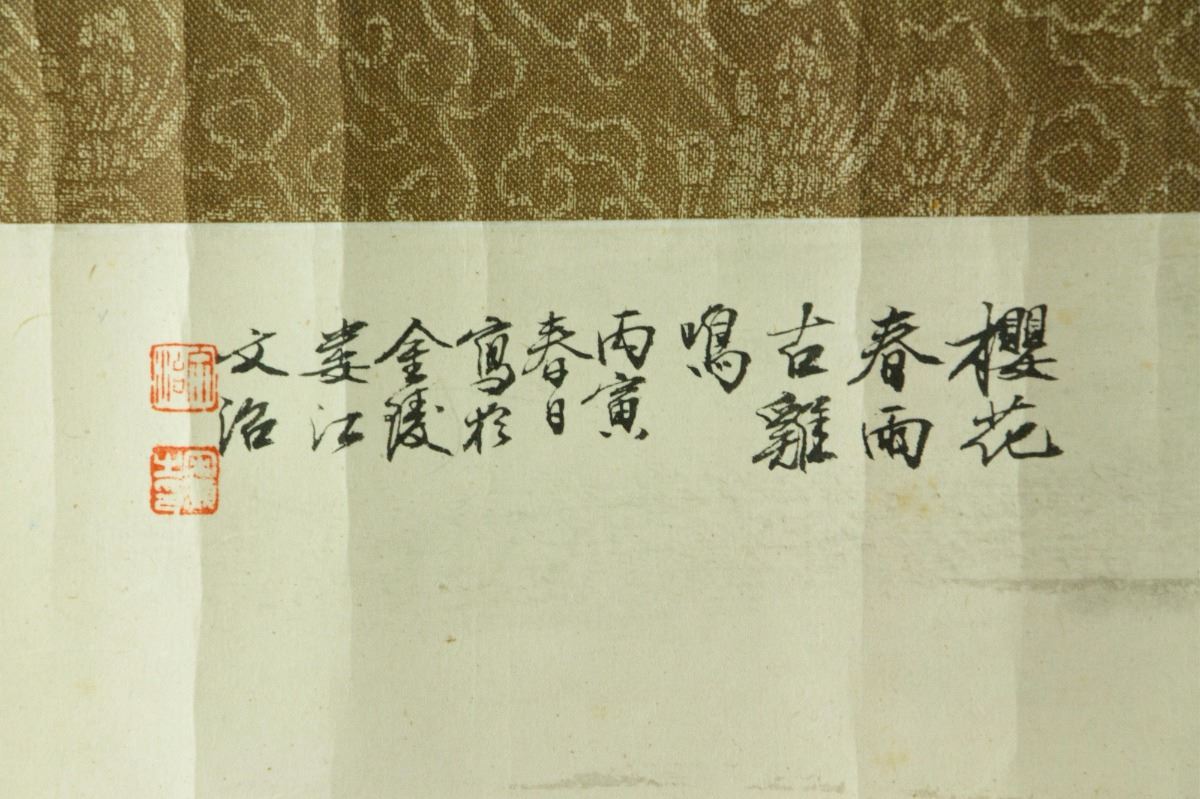 櫻花
春雨
古雞
鳴
丙寅
春日
寫於
金陵
婁江
文治
宋文治